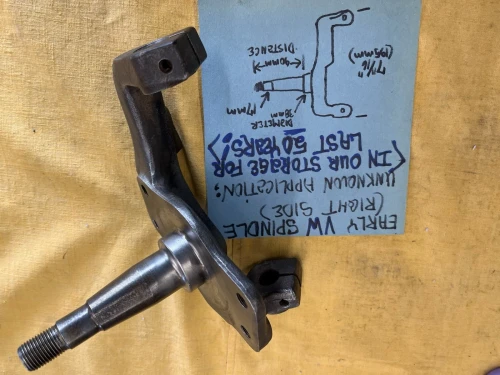 EARLY VW SPINDLE
(RIGHT SIDE)
UNKNOWN APPLICATION:
<IN OUR STORAGE FOR
LAST 50 YEARS!>
DIAMETER
38mm
17mm
90mm
DISTANCE
7 11/16"
(195mm)